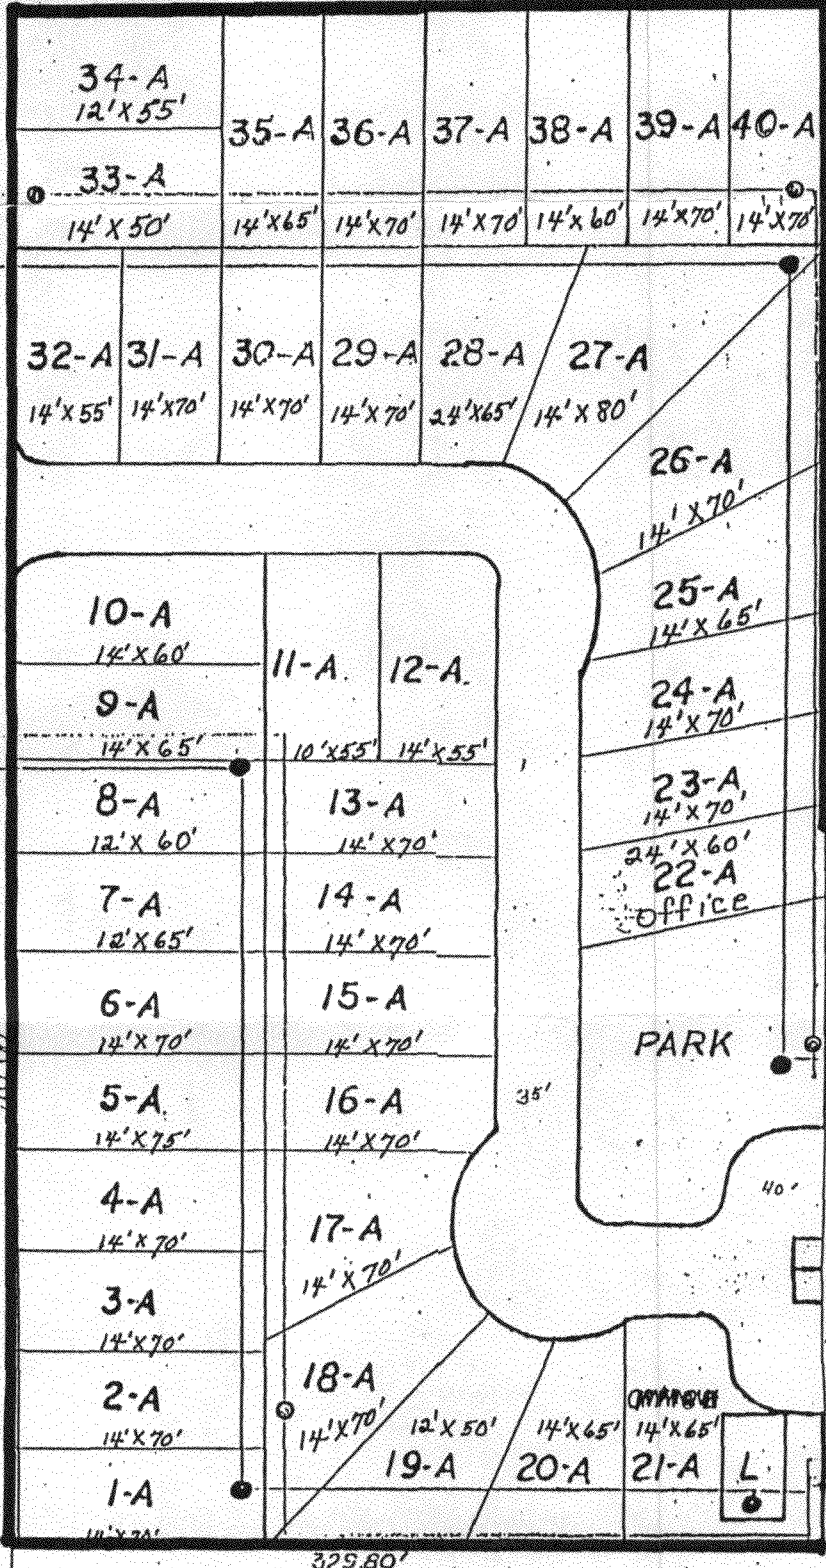 34-A
12'X55'
33-A
14'X50'
35-A
14'X65'
36-A
14'X70'
37-A
14'X70'
38-A
14'X60'
39-A
14'X70'
40-A
14'X70'
32-A
14'X55'
31-A
14'X70'
30-A
14'X70'
29-A
14'X70'
28-A
24'X65'
27-A
14'X80'
26-A
14'X70'
25-A
14'X65'
24-A
14'X70'
23-A
14'X70'
24'X60'
22-A
office
PARK
10-A
14'X60'
9-A
14'X65'
11-A
10'X55'
12-A
14'X55'
8-A
12'X60'
13-A
14'X70'
7-A
12'X65'
14-A
14'X70'
6-A
14'X70'
15-A
14'X70'
5-A
14'X75'
16-A
14'X70'
35'
40'
4-A
14'X70'
17-A
14'X70'
3-A
14'X70'
2-A
14'X70'
18-A
14'X70'
12'X50'
19-A
14'X65'
20-A
14'X65'
21-A
L
1-A
14'X70'
329.80'